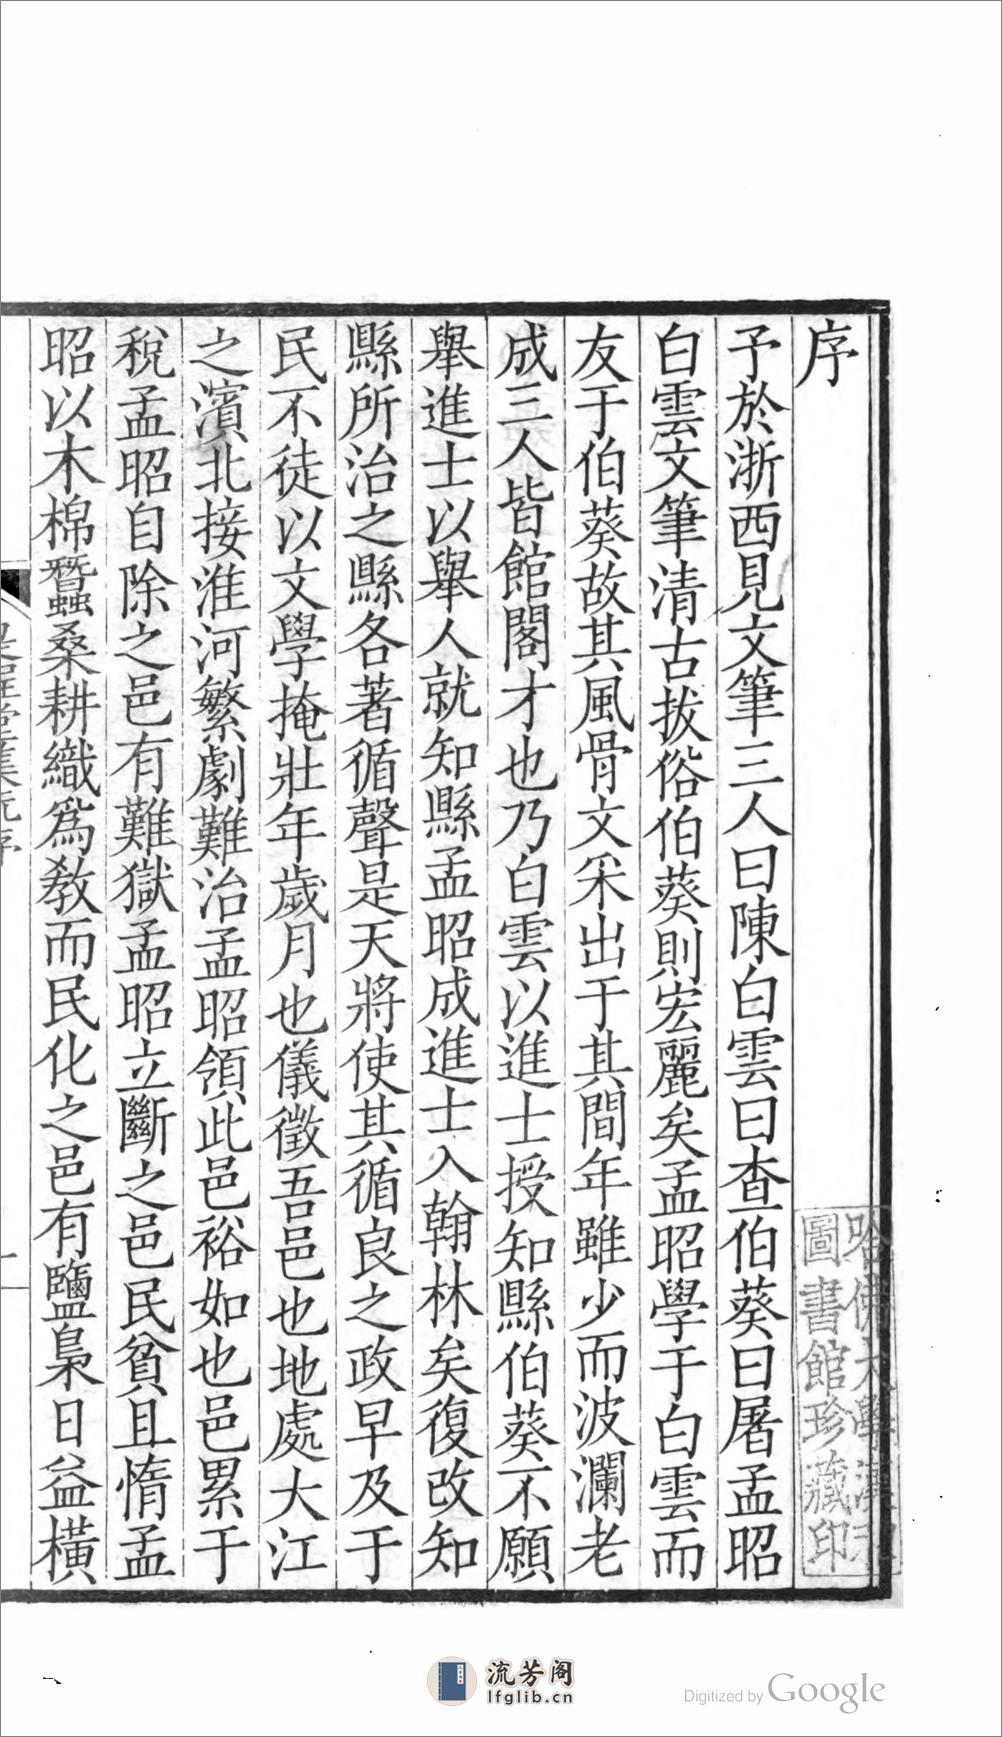 序
予於浙西見文筆三人曰陳白雲曰查伯葵曰屠孟昭
白雲文筆清古拔俗伯葵則宏麗矣孟昭學于白雲而
友于伯葵故其風骨文采出于其間年雖少而波瀾老
成三人皆館閣才也乃白雲以進士授知縣伯葵不願
舉進士以舉人就知縣孟昭成進士入翰林矣復改知
縣所治之縣各著循聲是天將使其循良之政早及于
民不徒以文學掩壯年歲月也儀徵吾邑也地處大江
之濱北接淮河繁劇難治孟昭領此邑裕如也邑累于
稅孟昭自除之邑有難獄孟昭立斷之邑民貧且惰孟
昭以木棉蠶桑耕織為教而民化之邑有鹽梟日益橫
哈佛大學漢和
圖書館珍藏印
流芳阁
lfglib.cn
Digitized by Google